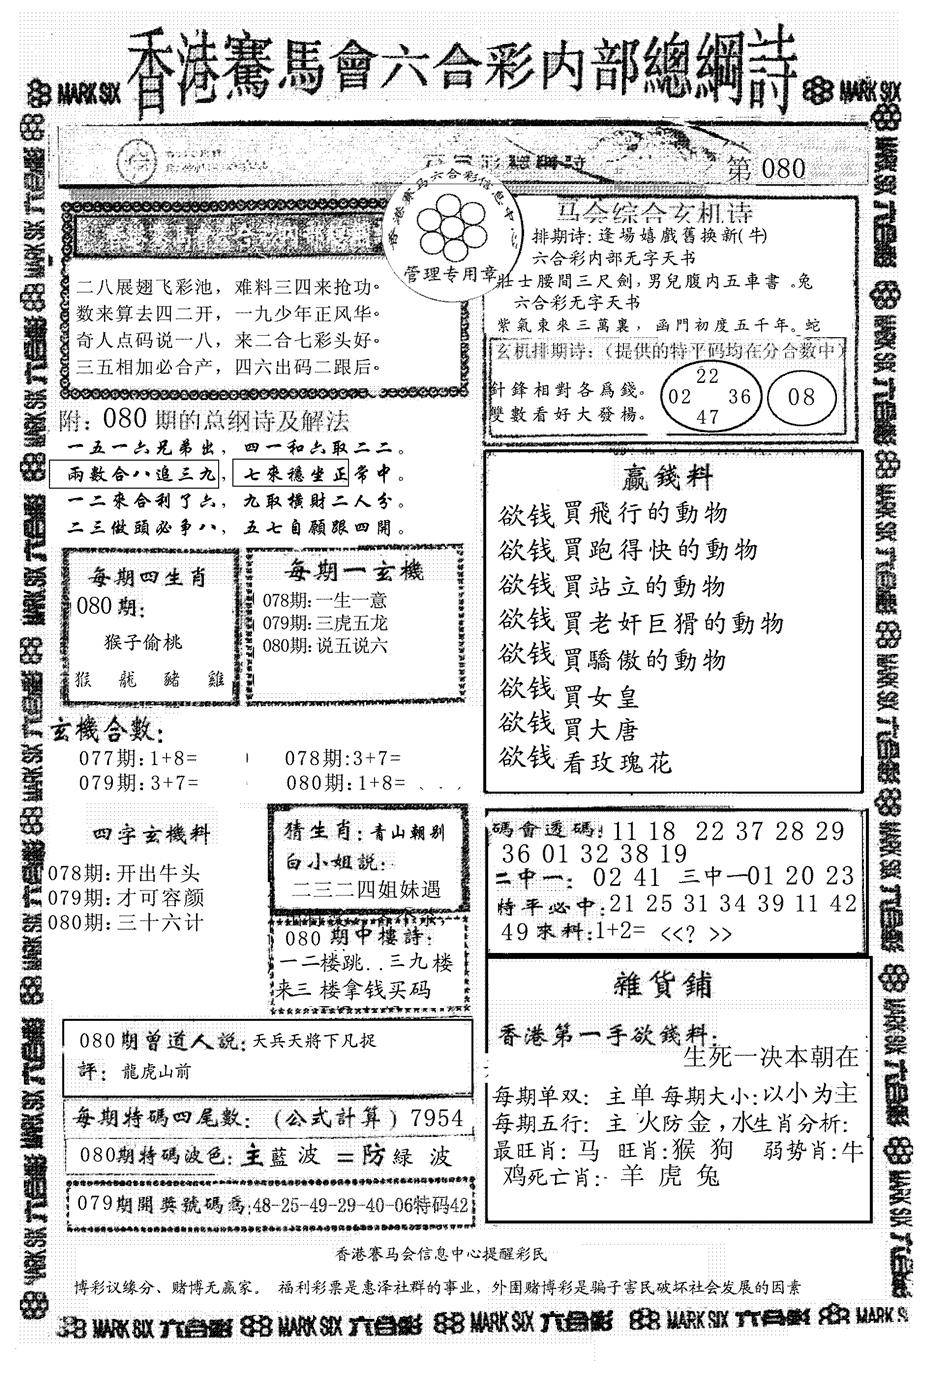 香港賽馬會六合彩内部總綱詩
MARK SIX
MARK SIX
第 080
香港赛马六合彩信息中
管理专用章
二八展翅飞彩池，难料三四来抢功。
数来算去四二开，一九少年正风华。
奇人点码说一八，来二合七彩头好。
三五相加必合产，四六出码二跟后。
附：080 期的总纲诗及解法
一五一六兄弟出，四一和六取二二。
兩數合八追三九，七來穩坐正常中。
一二來合利了六，九取橫財二人分。
二三做頭必事八，五七自願跟四開。
每期四生肖
080 期：
猴子偷桃
猴 龍 豬 雞
每期一玄機
078期：一生一意
079期：三虎五龙
080期：说五说六
玄機合數：
077期：1+8=
078期：3+7=
079期：3+7=
080期：1+8=
四字玄機料
078期：开出牛头
079期：才可容颜
080期：三十六计
猜生肖：青山朝别
白小姐説：
二三二四姐妹遇
080 期中樓詩：
一二楼跳..三九楼
来三 楼拿钱买码
080期曾道人説：天兵天將下凡捉
評：龍虎山前
每期特碼四尾數：（公式計算）7954
080期特碼波色：主藍 波 = 防緑 波
079期開獎號碼爲：48-25-49-29-40-06特码42
马会综合玄机诗
排期诗：逢場嬉戲舊换新(牛)
六合彩内部无字天书
壯士腰間三尺劍，男兒腹内五車書 。兔
六合彩无字天书
紫氣東來三萬裏，函門初度五千年。蛇
玄机排期诗：（提供的特平码均在分合數中）
針鋒相對各爲錢。
雙數看好大發楊。
22
02 36
47
08
贏錢料
欲钱買飛行的動物
欲钱買跑得快的動物
欲钱買站立的動物
欲钱買老奸巨猾的動物
欲钱買驕傲的動物
欲钱買女皇
欲钱買大唐
欲钱看玫瑰花
碼會透碼：11 18 22 37 28 29
36 01 32 38 19
二中一： 02 41 三中一01 20 23
特平必中：21 25 31 34 39 11 42
49 來料：1+2= <<? >>
雜貨鋪
香港第一手欲錢料：
生死一决本朝在
每期单双：主单 每期大小：以小为主
每期五行：主 火防金，水生肖分析：
最旺肖：马 旺肖：猴 狗 弱势肖：牛
鸡死亡肖：羊 虎 兔
香港赛马会信息中心提醒彩民
博彩议缘分、赌博无赢家。 福利彩票是惠泽社群的事业，外围赌博彩是骗子害民破坏社会发展的因素
MARK SIX 六合彩 MARK SIX 六合彩 MARK SIX 六合彩 MARK SIX 六合彩 MARK SIX